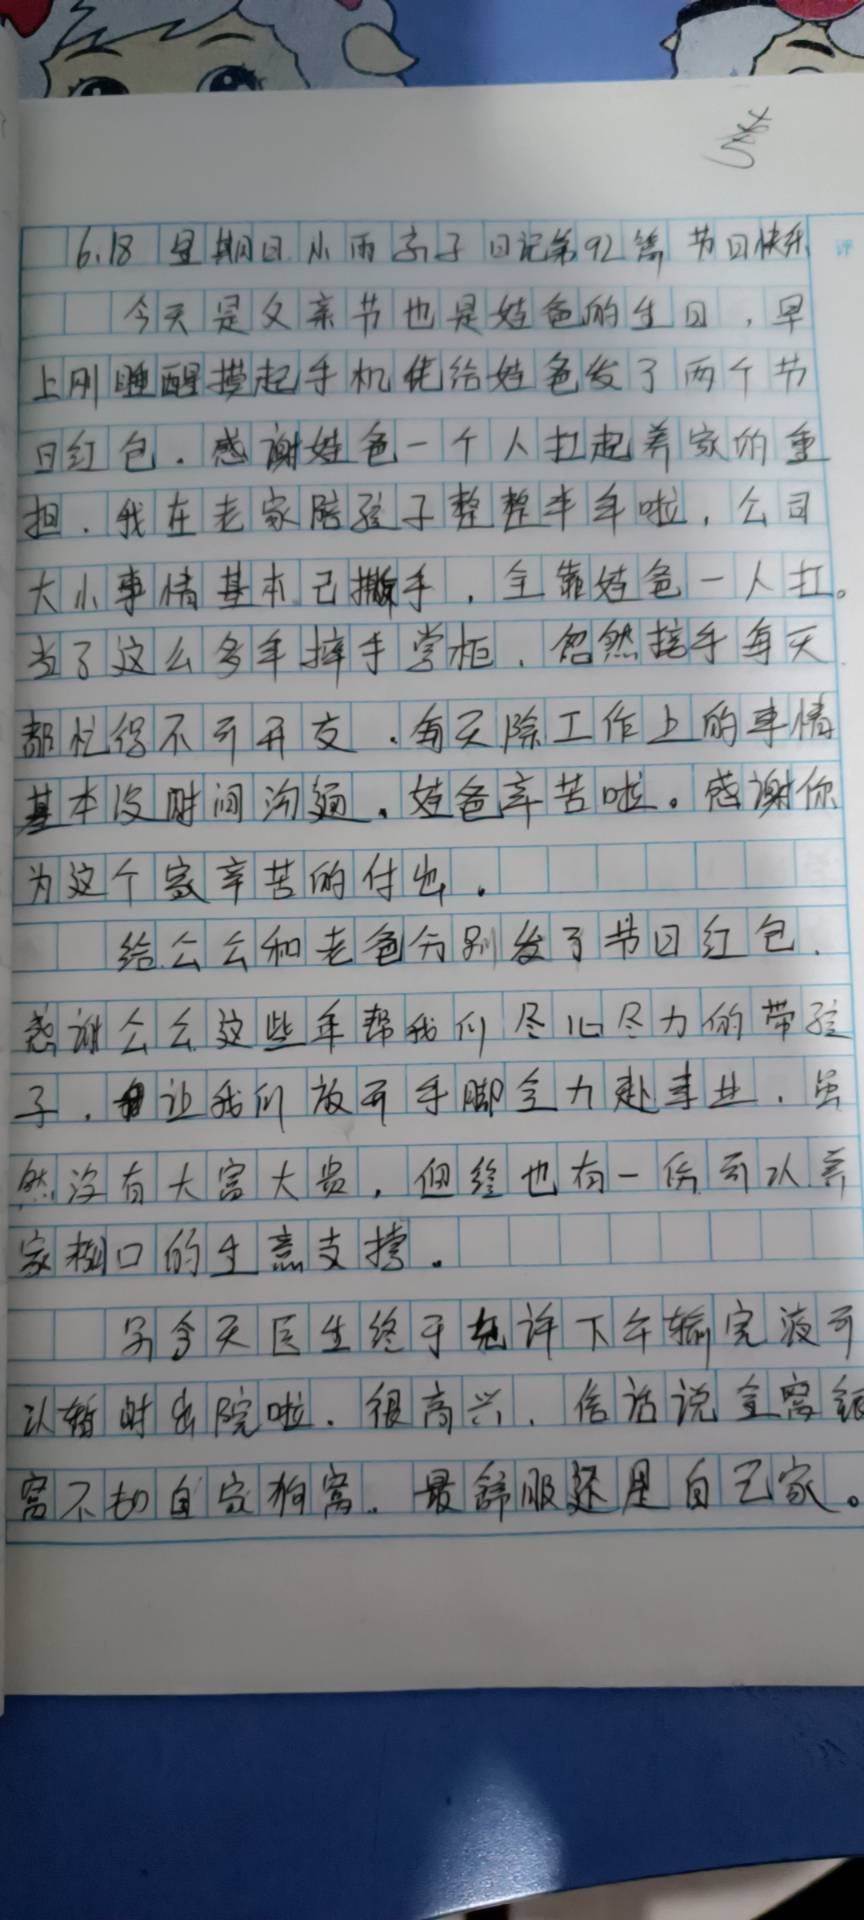 6.18 星期日 小雨 亲子日记第92篇 节日快乐
今天是父亲节也是娃爸的生日，早
上刚睡醒摸起手机先给娃爸发了两个节
日红包．感谢娃爸一个人扛起养家的重
担．我在老家陪孩子整整半年啦，公司
大小事情基本已撒手，全靠娃爸一人扛。
当了这么多年摔手掌柜．忽然接手每天
都忙得不可开交．每天除工作上的事情
基本没时间沟通．娃爸辛苦啦。感谢你
为这个家辛苦的付出．
给公公和老爸分别发了节日红包．
感谢公公这些年帮我们尽心尽力的带孩
子．让我们放开手脚全力赴事业．虽
然没有大富大贵，但终也有一份可以养
家糊口的生意支撑．
另今天医生终于允许下午输完液可
以暂时出院啦．很高兴．俗话说金窝银
窝不如自家狗窝．最舒服还是自己家。